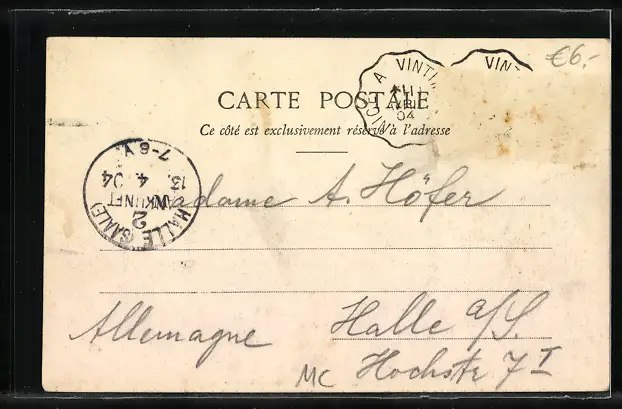 €6.-
NICE A VINTI
VINT
AVRIL
04
CARTE POSTALE
Ce côté est exclusivement réservé à l'adresse
HALLE (SAALE)
2
ANKUNFT
13. 4. 04
7-8 V.
Madame A. Höfer
Halle a/S.
Allemagne
Hochstr 7 I
MC